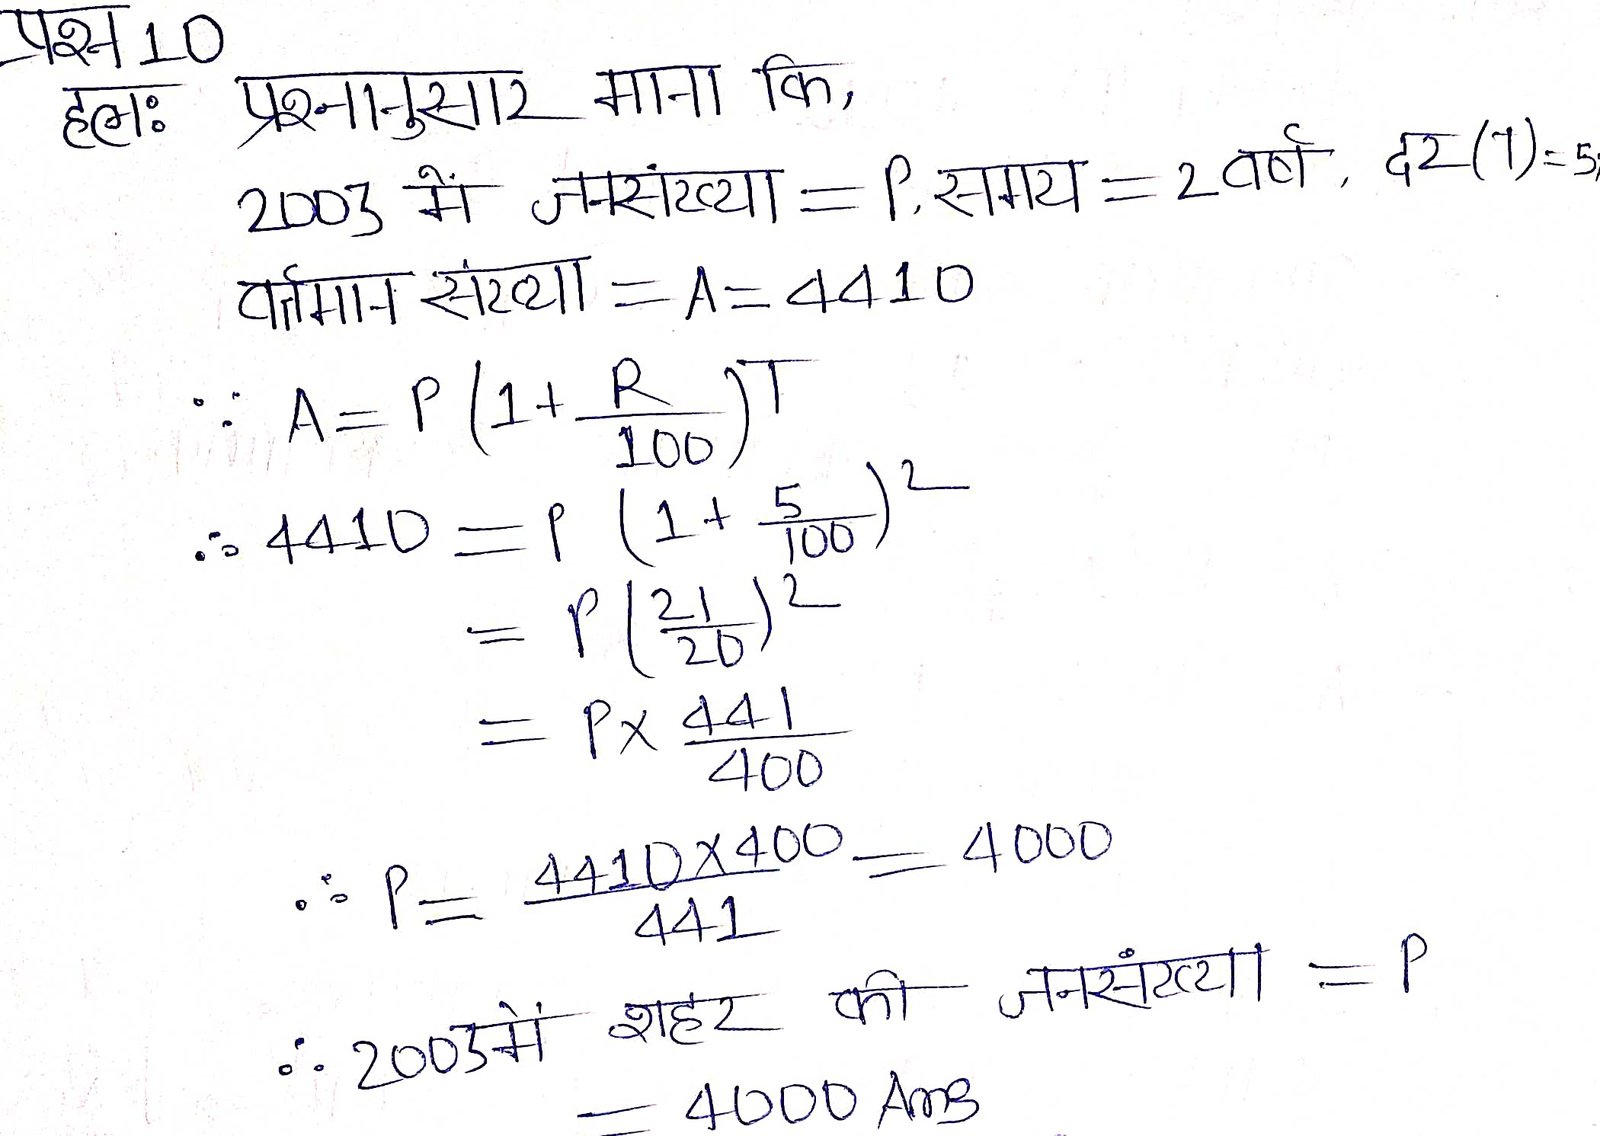 प्रश्न 10
हलः प्रश्नानुसार माना कि,
2003 में जनसंख्या = P, समय = 2 वर्ष, दर (r) = 5%
वर्तमान संख्या = A = 4410
∵ A = P (1 + R/100)^T
∴ 4410 = P (1 + 5/100)^2
= P (21/20)^2
= P × 441/400
∴ P = 4410 × 400/441 = 4000
∴ 2003 में शहर की जनसंख्या = P
= 4000 Ans